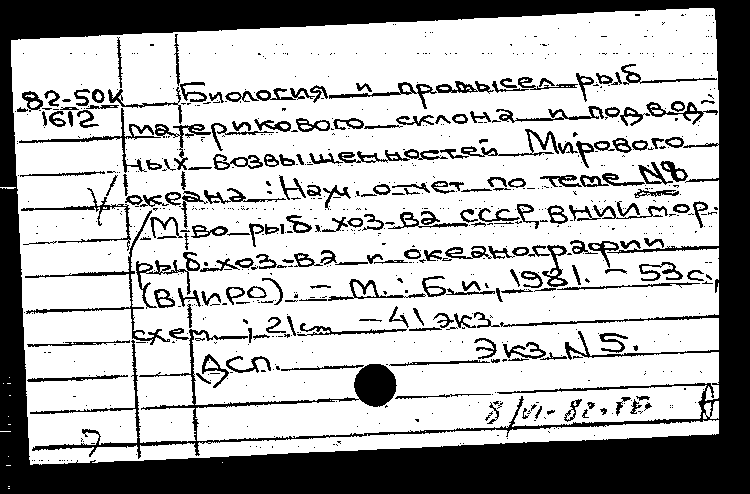 82-50к Биология и промысел рыб
1612 материкового склона и подвод-
ных возвышенностей Мирового
океана : Науч. отчет по теме №8
/М-во рыб. хоз-ва СССР, ВНИИ мор.
рыб. хоз-ва и океанографии
(ВНИРО). – М. : Б.и., 1981. – 53 с.,
схем. ; 21 cm – 41 экз.
ДСП. Экз. N 5.
8/VI-82.